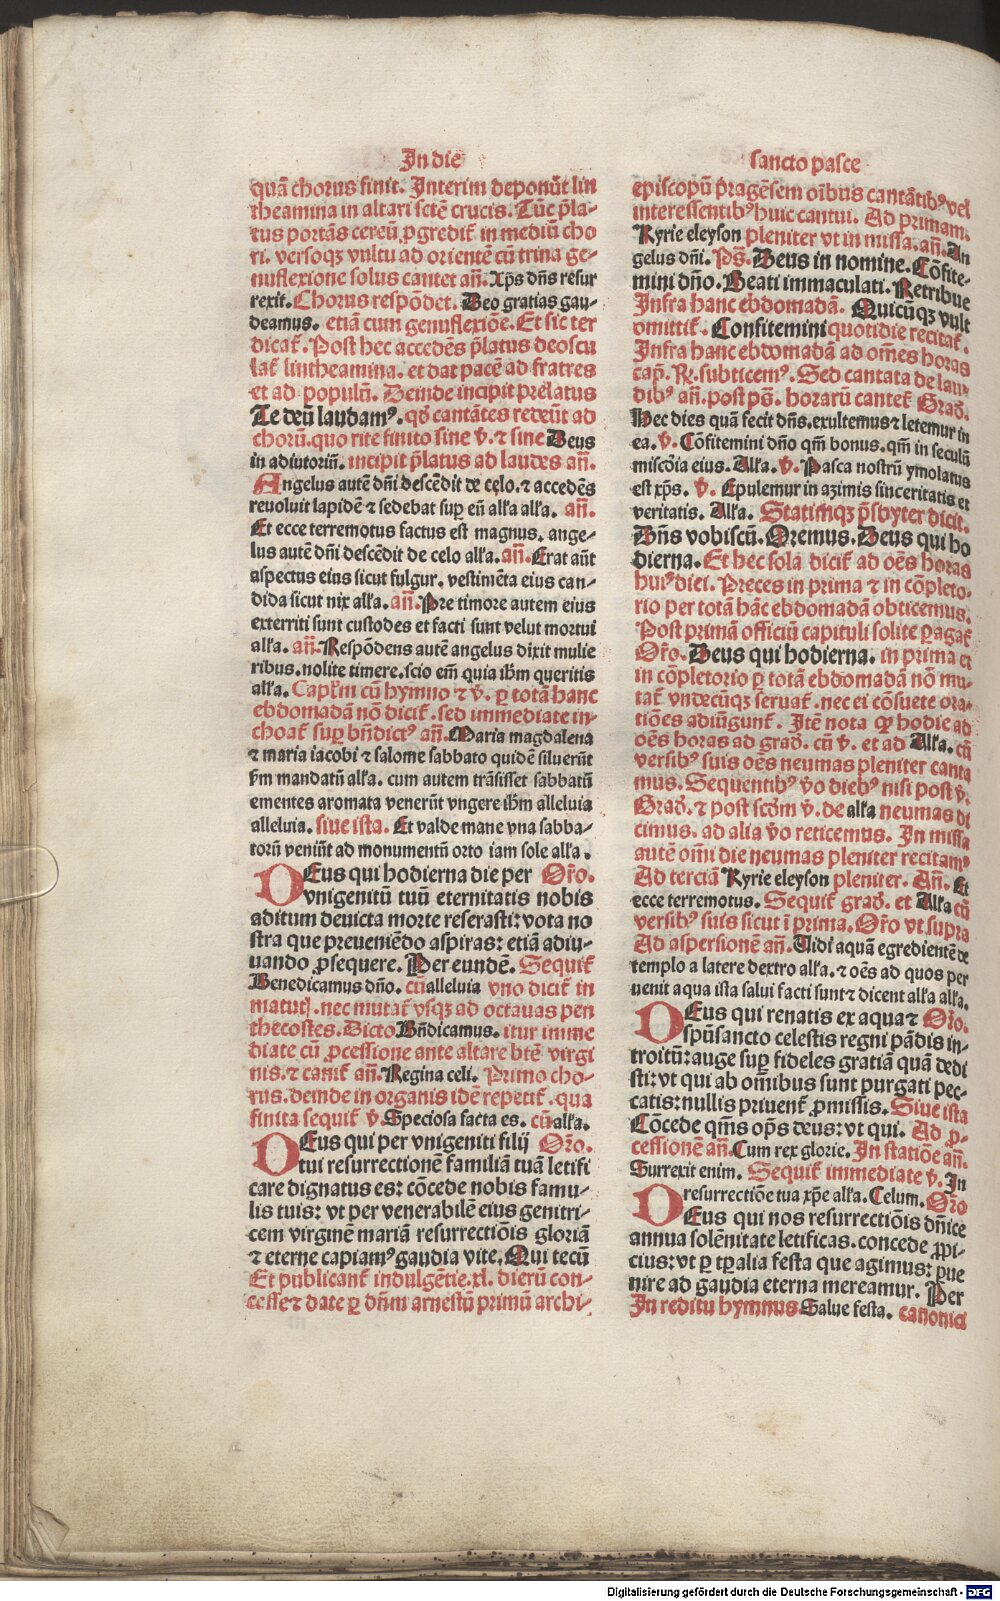 In die
quā chorus finit. Interim deponūt lin
theamina in altari scte crucis. Tūc p̄la-
tus portās cereū ꝓgredit̄ in mediū cho
ri. versoqꝫ vultu ad orientē cū trina ge-
nuflexione solus cantet an̄. Xp̄s dn̄s resur
rexit. Chorus respōdet. Deo gratias gau-
deamus. etiā cum genuflexiōe. Et sic ter
dicat̄. Post hec accedēs p̄latus deoscu
lat̄ lintheamina. et dat pacē ad fratres
et ad populū. Deinde incipit prelatus
Te deū laudamꝰ. qd̄ cantātes redeūt ad
chorū. quo rite finito sine v̄. et sine Deus
in adiutoriū. incipit p̄latus ad laudes an̄.
Angelus autē dn̄i descēdit de celo. ⁊ accedēs
reuoluit lapidē ⁊ sedebat sup̄ eū alła alła. an̄.
Et ecce terremotus factus est magnus. ange-
lus autē dn̄i descēdit de celo alła. an̄. Erat aūt
aspectus eius sicut fulgur. vestimēta eius can-
dida sicut nix alła. an̄. Pre timore autem eius
exterriti sunt custodes et facti sunt velut mortui
alła. an̄. Respōdens autē angelus dixit mulie
ribus. nolite timere. scio em̄ quia ihm̄ queritis
alła. Capl̄m cū hymno ⁊ v̄. ꝑ totā hanc
ebdomadā nō dicit̄. sed immediate in-
choat̄ sup̄ bn̄dictꝰ an̄. Maria magdalena
⁊ maria iacobi ⁊ salome sabbato quidē siluerūt
ẜm mandatū alła. cum autem trāsisset sabbatū
ementes aromata venerūt vngere ihm̄ alleluia
alleluia. siue ista. Et valde mane vna sabba-
torū veniūt ad monumentū orto iam sole alła.
DEus qui hodierna die per Or̄o.
vnigenitū tuū eternitatis nobis
aditum deuicta morte reserasti: vota no
stra que preueniēdo aspiras: etiā adiu-
uando ꝓsequere. Per eundē. Sequit̄
Benedicamus dn̄o. cū alleluia vno dicit̄ in
matut̄. nec mutat̄ vsqꝫ ad octauas pen
thecostes. Dicto Bn̄dicamus. itur imme
diate cū ꝓcessione ante altare bt̄e virgi
nis. ⁊ canit̄ an̄. Regina celi. Primo cho-
rus. deinde in organis idē repetit̄. qua
finita sequit̄ v̄. Speciosa facta es. cū alła.
DEus qui per vnigeniti filij Or̄o.
tui resurrectionē familiā tuā letifi
care dignatus es: cōcede nobis famu-
lis tuis: vt per venerabilē eius genitri-
cem virginē mariā resurrectiōis gloriā
⁊ eterne capiamꝰ gaudia vite. Qui tecū
Et publicant̄ indulgētie. xl. dierū con-
cesse ⁊ date ꝑ dn̄m arnestū primū archi-
sancto pasce
episcopū prāgēsem oībus cantātibꝰ vel
interessentibꝰ huic cantui. Ad primam.
Kyrie eleyson pleniter vt in missa. an̄. An
gelus dn̄i. Ps̄. Deus in nomine. Cōfite-
mini dn̄o. Beati immaculati. Retribue
Infra hanc ebdomadā. Quicūqꝫ vult
omittit̄. Confitemini quotidie recitat̄.
Infra hanc ebdomadā ad om̄es horas
cap̄. R̄. subticemꝰ. Sed cantata de lau
dibꝰ an̄. post ps̄. horarū cantet̄ Grad̄.
Hec dies quā fecit dn̄s. exultemus ⁊ letemur in
ea. v̄. Cōfitemini dn̄o qm̄ bonus. qm̄ in seculū
mis̄cdia eius. Alła. v̄. Pasca nostrū ymolatus
est xp̄s. v̄. Epulemur in azimis sinceritatis et
veritatis. Alła. Statimqꝫ p̄sbyter dicit.
Dn̄s vobiscū. Oremus. Deus qui ho
dierna. Et hec sola dicit̄ ad oēs horas
huiꝰ diei. Preces in prima ⁊ in cōpleto-
rio per totā hāc ebdomadā obticemus.
Post primā officiū capituli solite ꝑagat̄
Or̄o. Deus qui hodierna. in prima et
in cōpletorio ꝑ totā ebdomadā nō mu-
tat̄ vndecūqꝫ seruat̄. nec ei cōsuete ora-
tiōes adiūgunt̄. Itē nota ꝙ hodie ad
oēs horas ad grad̄. cū v̄. et ad Alła. cū
versibꝰ suis oēs neumas pleniter canta
mus. Sequentibꝰ v̄o diebꝰ nisi post v̄.
Grad̄. ⁊ post scd̄m v̄. de alła neumas di
cimus. ad alia v̄o reticemus. In missa
autē om̄i die neumas pleniter recitamꝰ
Ad terciā Kyrie eleyson pleniter. An̄. Et
ecce terremotus. Sequit̄ grad̄. et Alła cū
versibꝰ suis sicut ī prima. Or̄o vt supra
Ad aspersionē an̄. Uidi aquā egredientē de
templo a latere dextro alła. ⁊ oēs ad quos per
uenit aqua ista salui facti sunt ⁊ dicent alła alła.
DEus qui renatis ex aqua ⁊ Or̄o.
spūsancto celestis regni pādis in-
troitū: auge sup̄ fideles gratiā quā dedi
sti: vt qui ab om̄ibus sunt purgati pec-
catis: nullis priuent̄ ꝓmissis. Siue ista
Cōcede qm̄s op̄s deus: vt qui. Ad ꝓ-
cessionē an̄. Cum rex glorie. In statiōe an̄.
Surrexit enim. Sequit̄ immediate v̄. In
resurrectiōe tua xp̄e alła. Celum. Or̄o
DEus qui nos resurrectiōis dn̄ice
annua solēnitate letificas. concede ꝓpi-
cius: vt ꝑ tp̄alia festa que agimus: ꝑue
nire ad gaudia eterna mereamur. Per
In reditu hymnus Salue festa. canonici
Digitalisierung gefördert durch die Deutsche Forschungsgemeinschaft - DFG